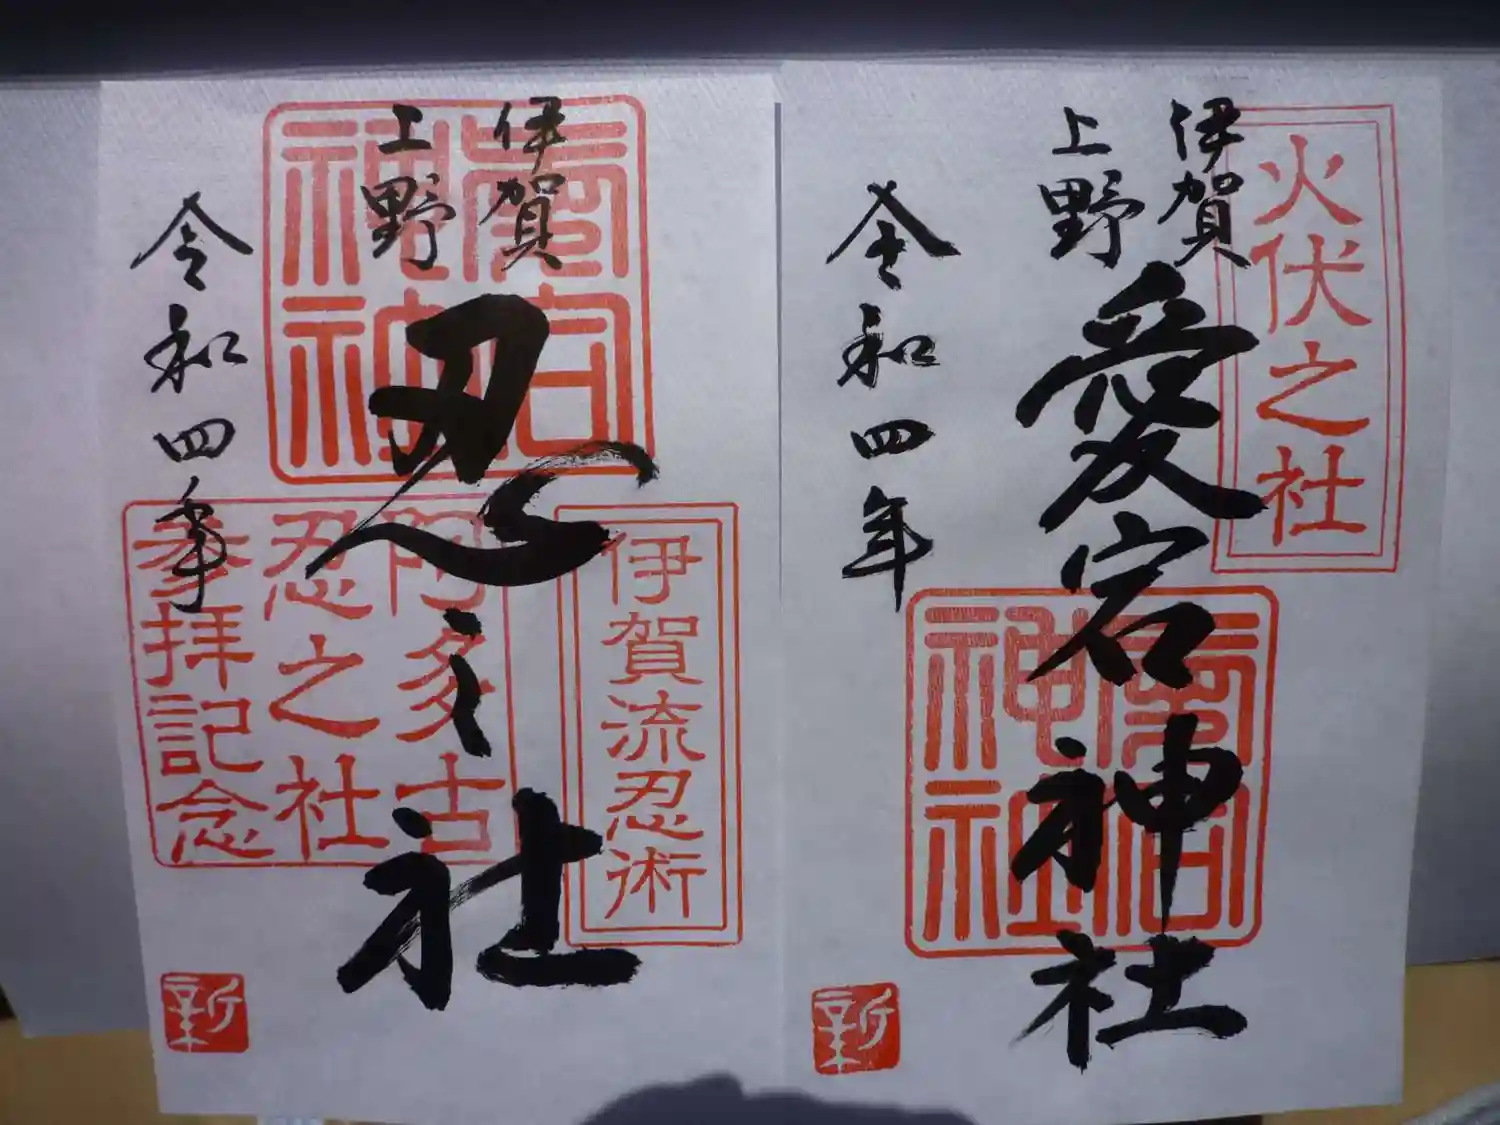 火伏之社
伊賀
上野
愛宕神社
令和四年
新
伊賀
上野
忍之社
令和四年
伊賀流忍術
阿多古
忍之社
参拝記念
新